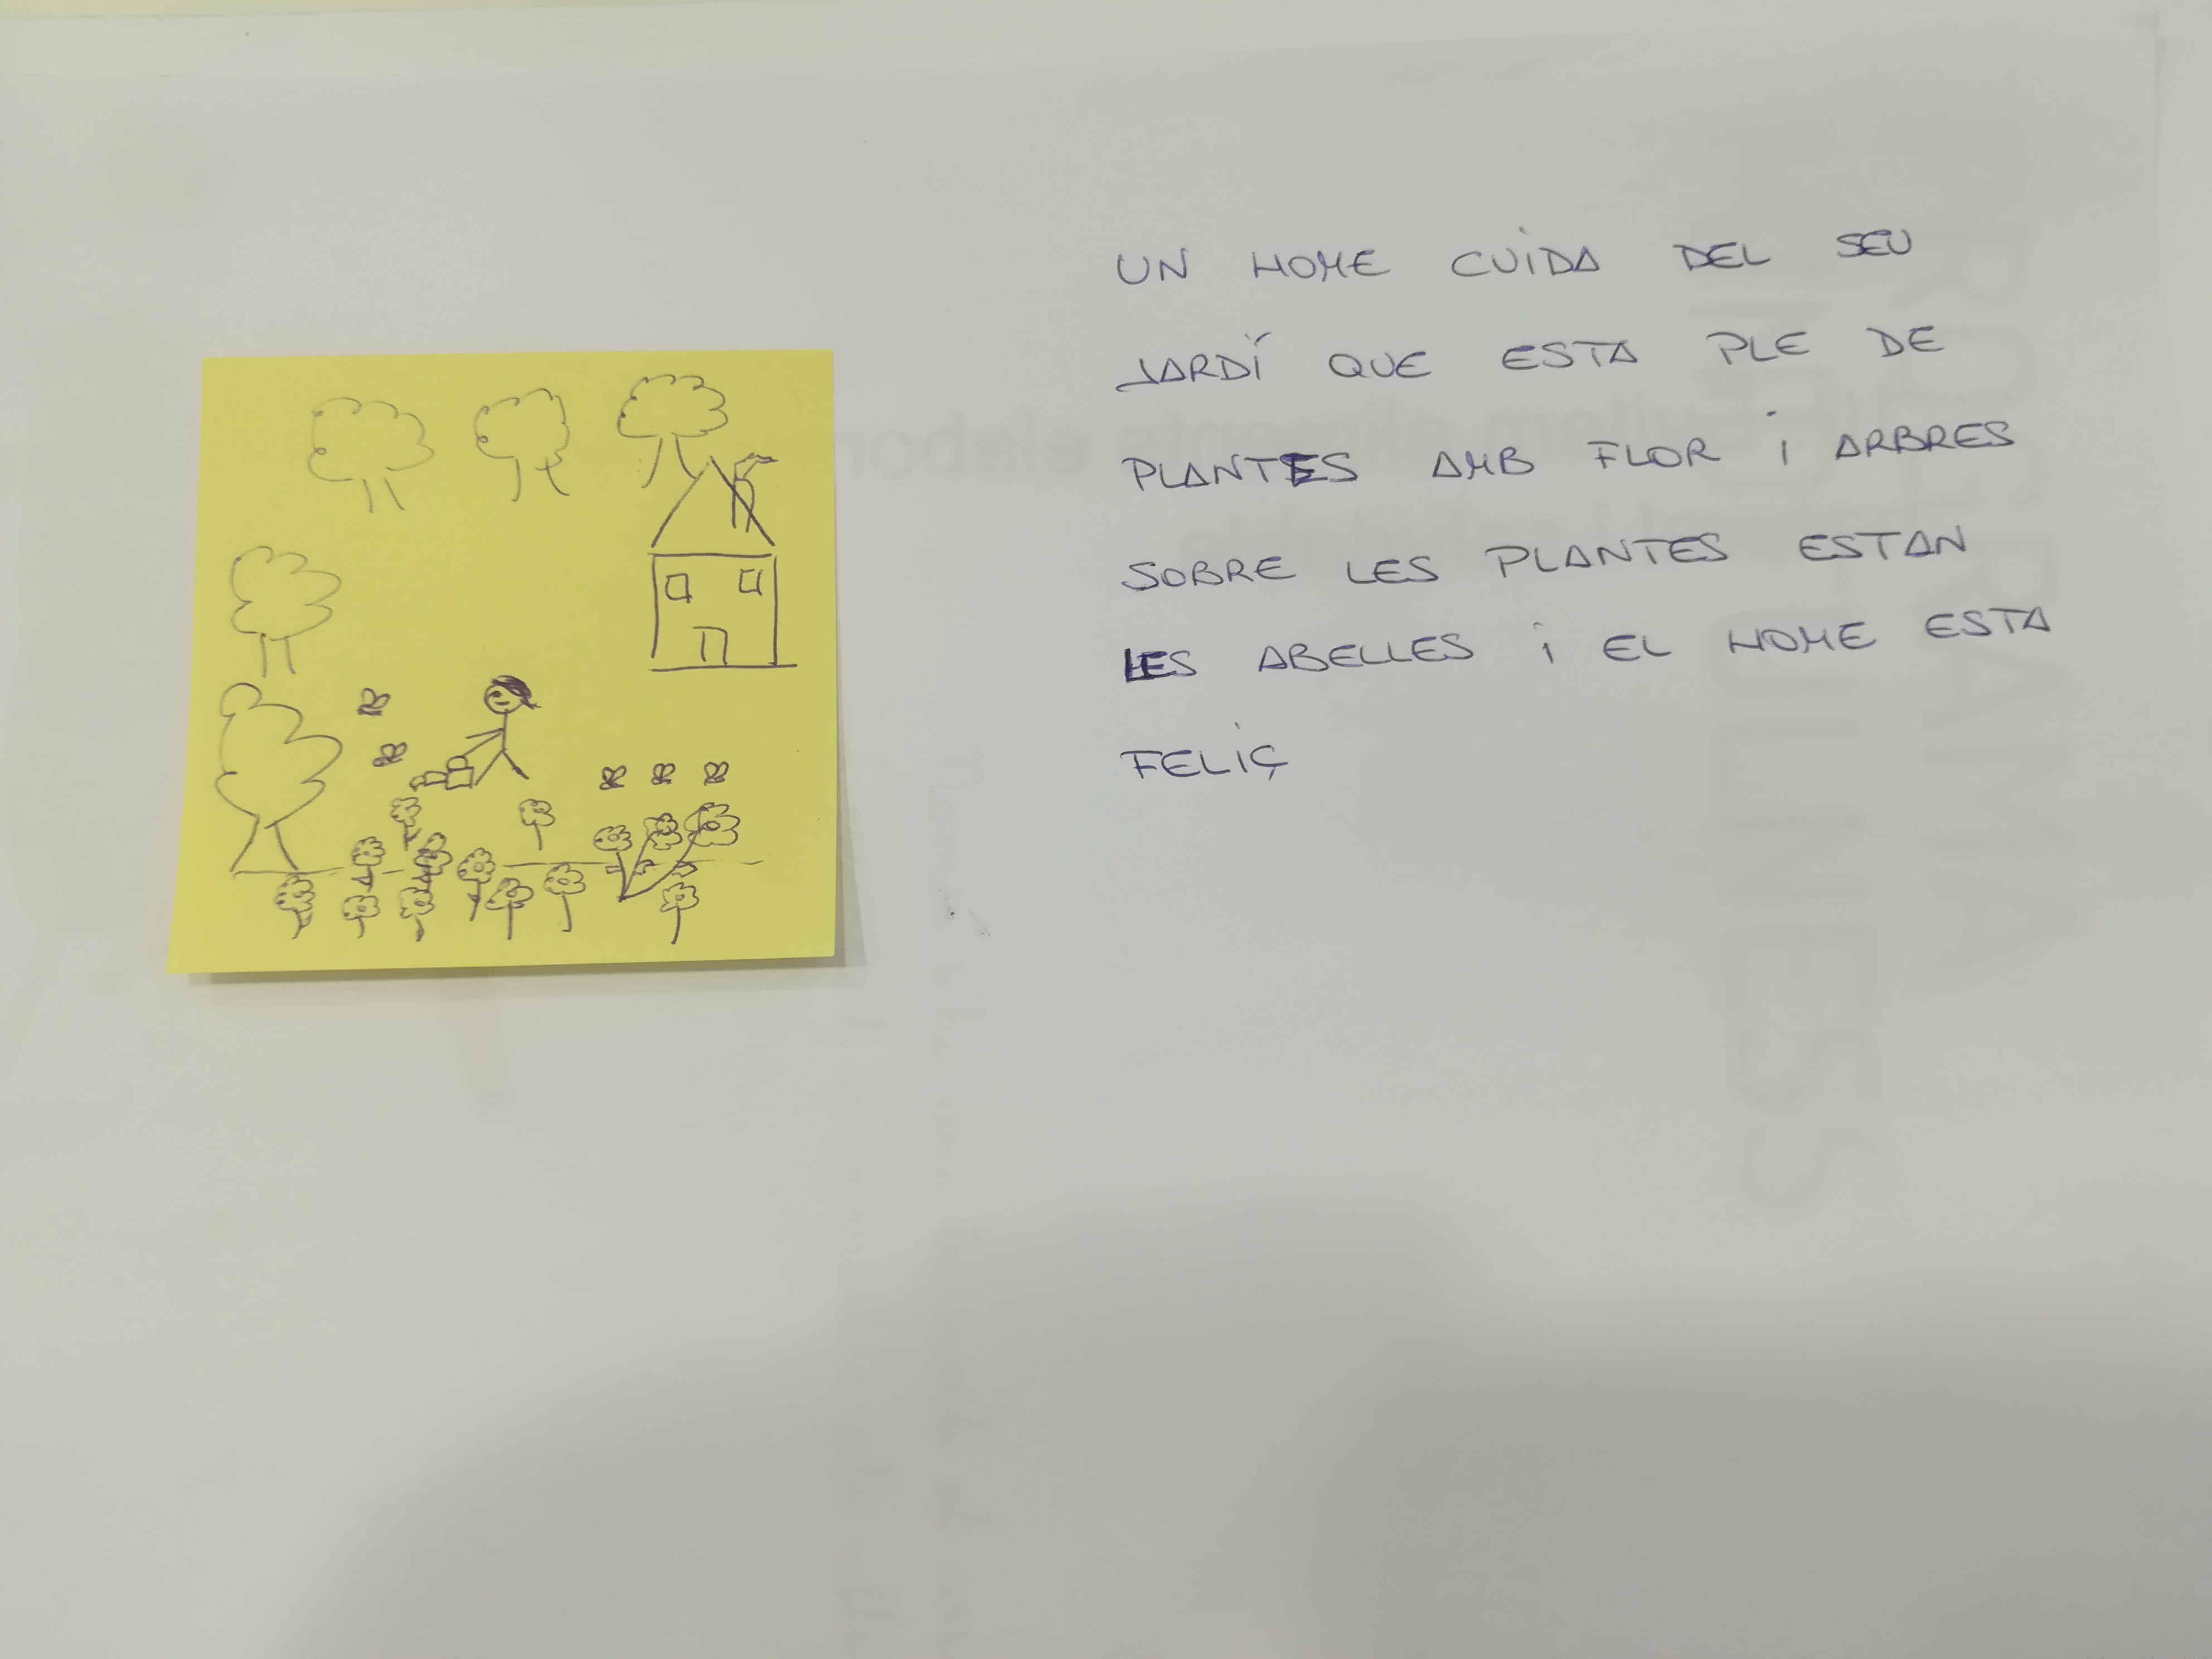 UN HOME CUIDA DEL SEU
JARDÍ QUE ESTA PLE DE
PLANTES AMB FLOR i ARBRES
SOBRE LES PLANTES ESTAN
LES ABELLES i EL HOME ESTA
FELIÇ